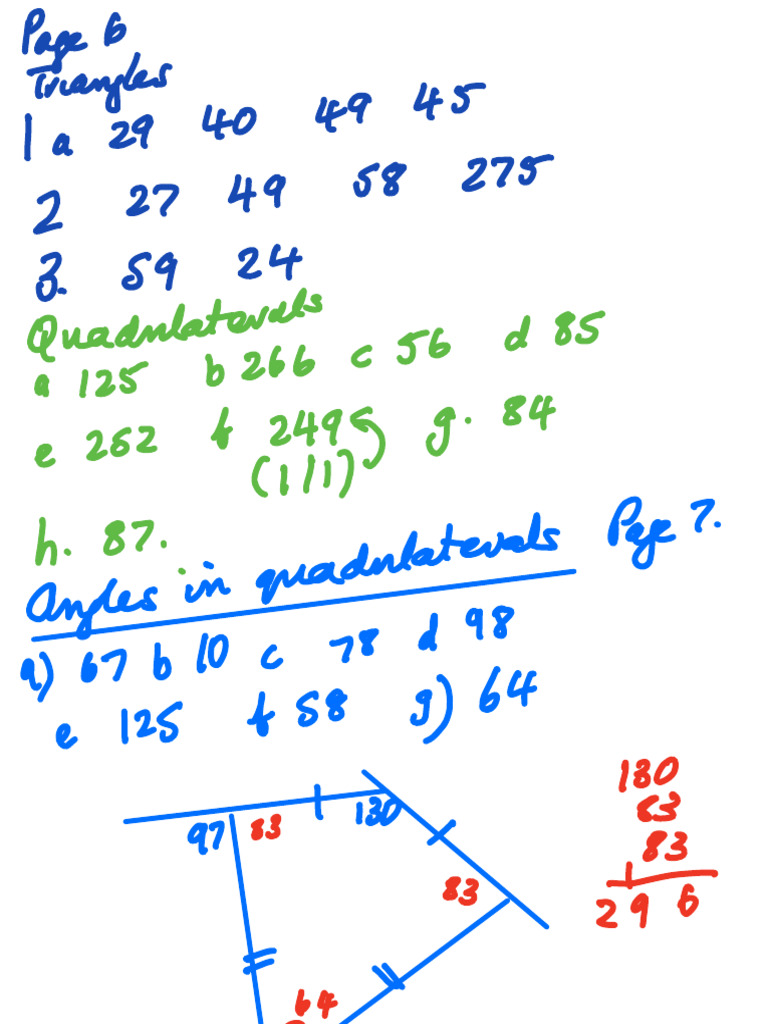 Page 6
Triangles
1 a 29 40 49 45
2 27 49 58 275
3. 59 24
Quadrilaterals
a 125 b 266 c 56 d 85
e 252 f 249 g. 84
(111)
h. 87.
Angles in quadrilaterals Page 7.
a) 67 b 10 c 78 d 98
e 125 f 58 g) 64
97 83 130
83
64
130
83
83
1
296